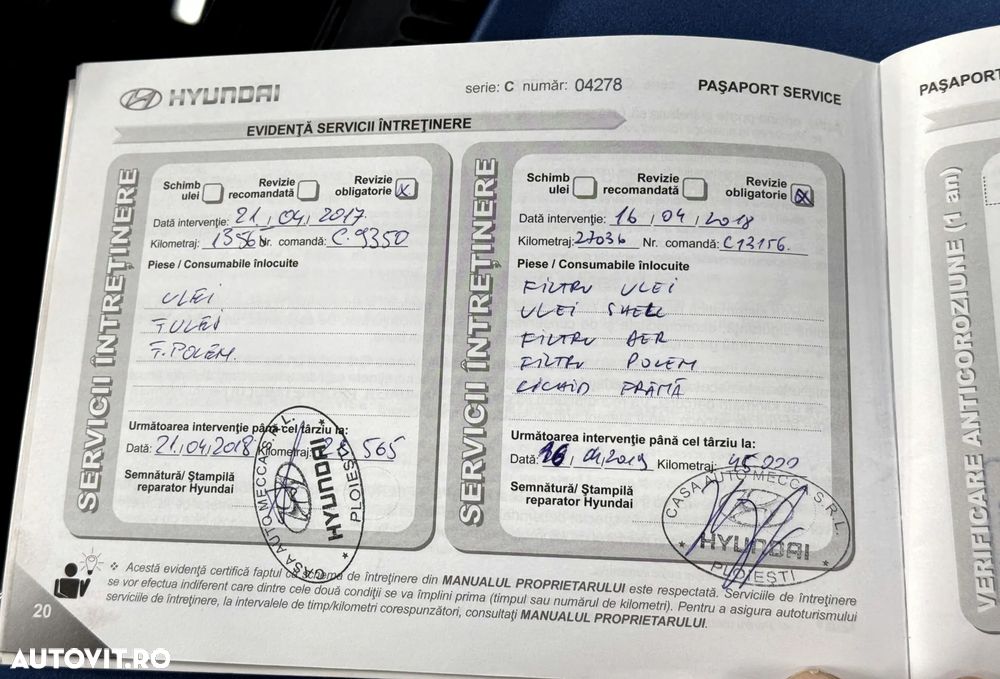 HYUNDAI
serie: C număr: 04278
PAŞAPORT SERVICE
EVIDENŢĂ SERVICII ÎNTREŢINERE
SERVICII ÎNTREŢINERE
Schimb ulei
Revizie recomandată
Revizie obligatorie x
Dată intervenţie: 21, 04, 2017.
Kilometraj: 13565 Nr. comandă: C.9350
Piese / Consumabile înlocuite
ULEI
F ULEI
F. POLEM.
Următoarea intervenţie până cel târziu la:
Dată: 21,04,2018 Kilometraj: 565
Semnătură/ Ştampilă
reparator Hyundai
CASA AUTO MECCA S.R.L.
HYUNDAI
PLOIEŞTI
SERVICII ÎNTREŢINERE
Schimb ulei
Revizie recomandată
Revizie obligatorie x
Dată intervenţie: 16, 04, 2018
Kilometraj: 27036 Nr. comandă: C13156.
Piese / Consumabile înlocuite
FILTRU ULEI
ULEI SHELL
FILTRU AER
FILTRU POLEM
LICHID FRÂNĂ
Următoarea intervenţie până cel târziu la:
Dată: 16, 04,2019 Kilometraj: 45000
Semnătură/ Ştampilă
reparator Hyundai
CASA AUTO MECCA S.R.L.
HYUNDAI
PLOIEŞTI
Acestă evidenţă certifică faptul că schema de întreţinere din MANUALUL PROPRIETARULUI este respectată. Serviciile de întreţinere
se vor efectua indiferent care dintre cele două condiţii se va împlini prima (timpul sau numărul de kilometri). Pentru a asigura autoturismului
serviciile de întreţinere, la intervalele de timp/kilometri corespunzători, consultaţi MANUALUL PROPRIETARULUI.
20
PAŞAPORT
VERIFICARE ANTICOROZIUNE (1 an)
AUTOVIT.RO